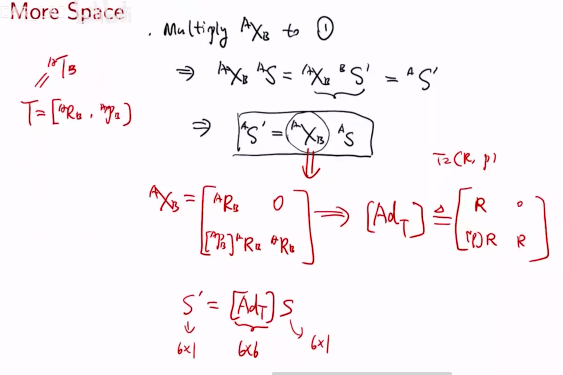 More Space
. Multiply ᴬX_B to ①
⇒ ᴬX_B ᴬS = ᴬX_B ᴮS' = ᴬS'
ᴬT_B
T = [ᴬR_B, ᴬp_B)
⇒ ᴬS' = ᴬX_B ᴬS
T=(R, p)
ᴬX_B = [ᴬR_B 0
[ᴬp_B] ᴬR_B ᴬR_B] ⇒ [Ad_T] ≜ [R 0
[p]R R]
S' = [Ad_T] S
6x1 6x6 6x1